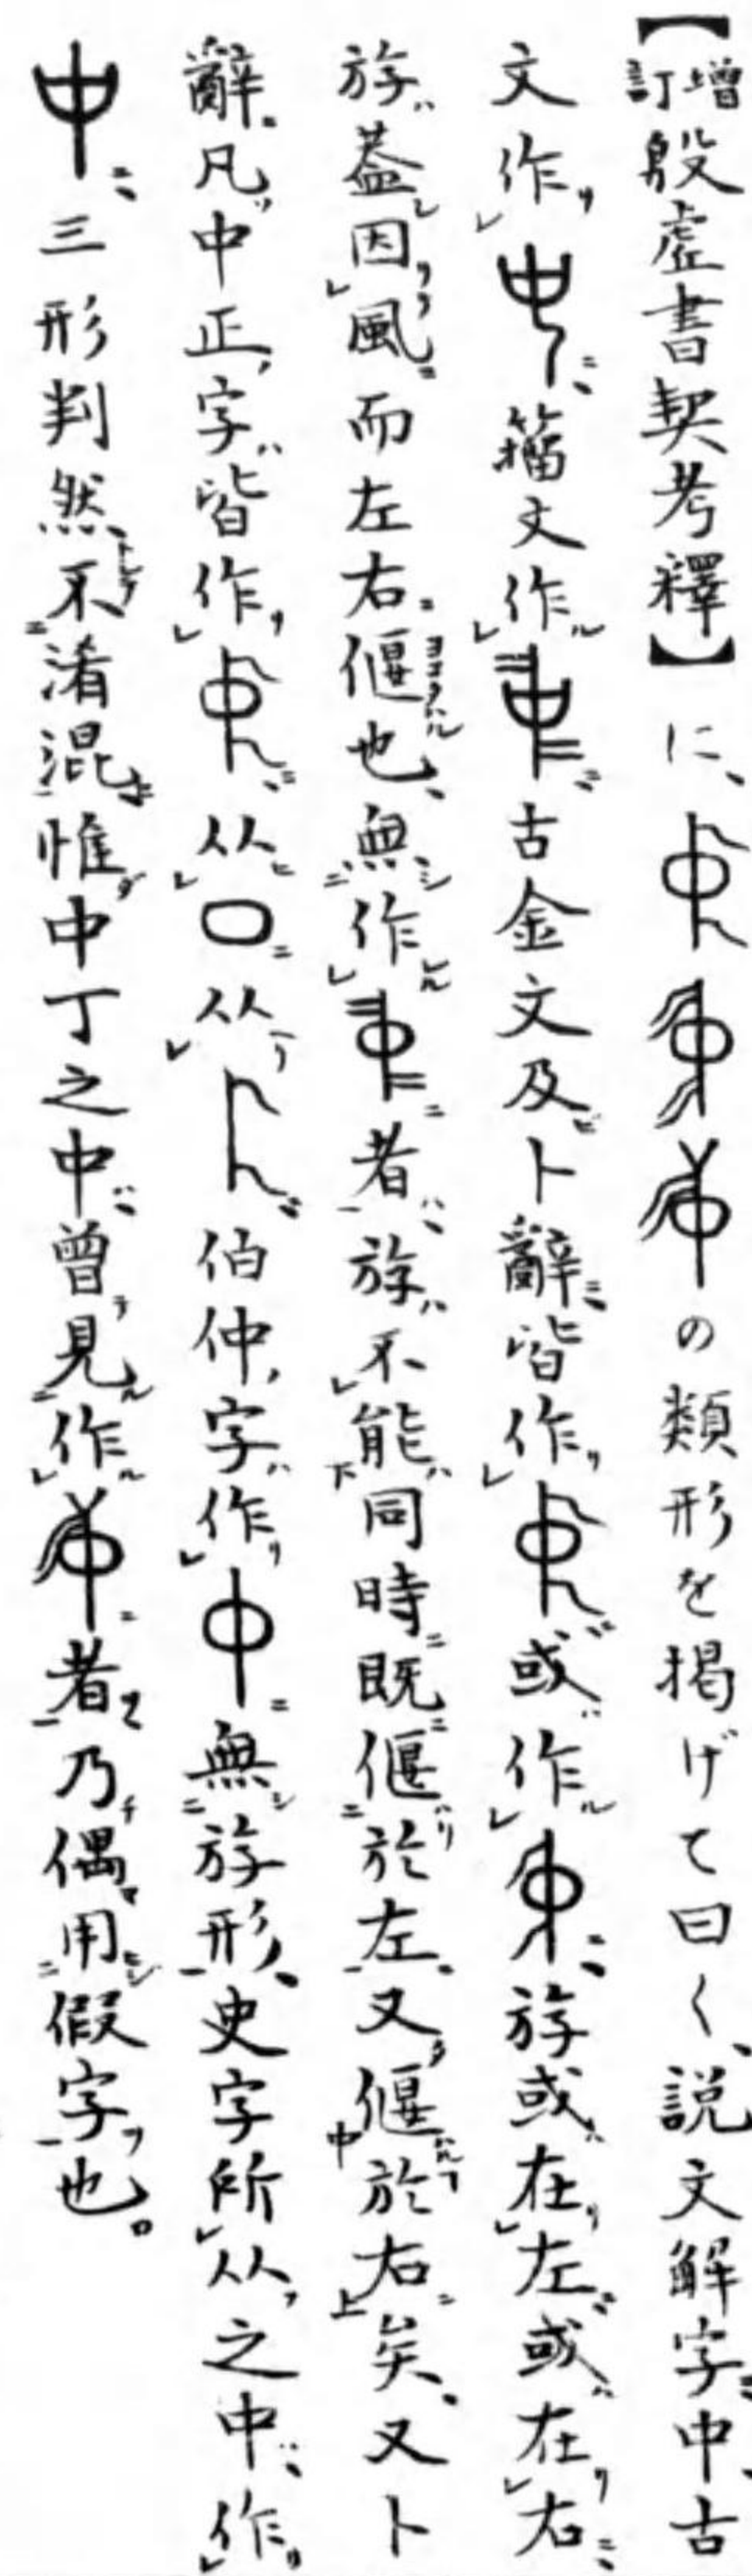 【増訂殷虚書契考釋】に、の類形を掲げて曰く、説文解字中、古
文作籀文作古金文及卜辭皆作或作斿或在左或在右
斿蓋因風而左右偃也、無作者、斿不能同時既偃於左、又偃於右矣、又卜
辭凡中正字皆作从口从伯仲字作無斿形、史字所从之中作
三形判然不淆混惟中丁之中曾見作者乃偶用假字也。